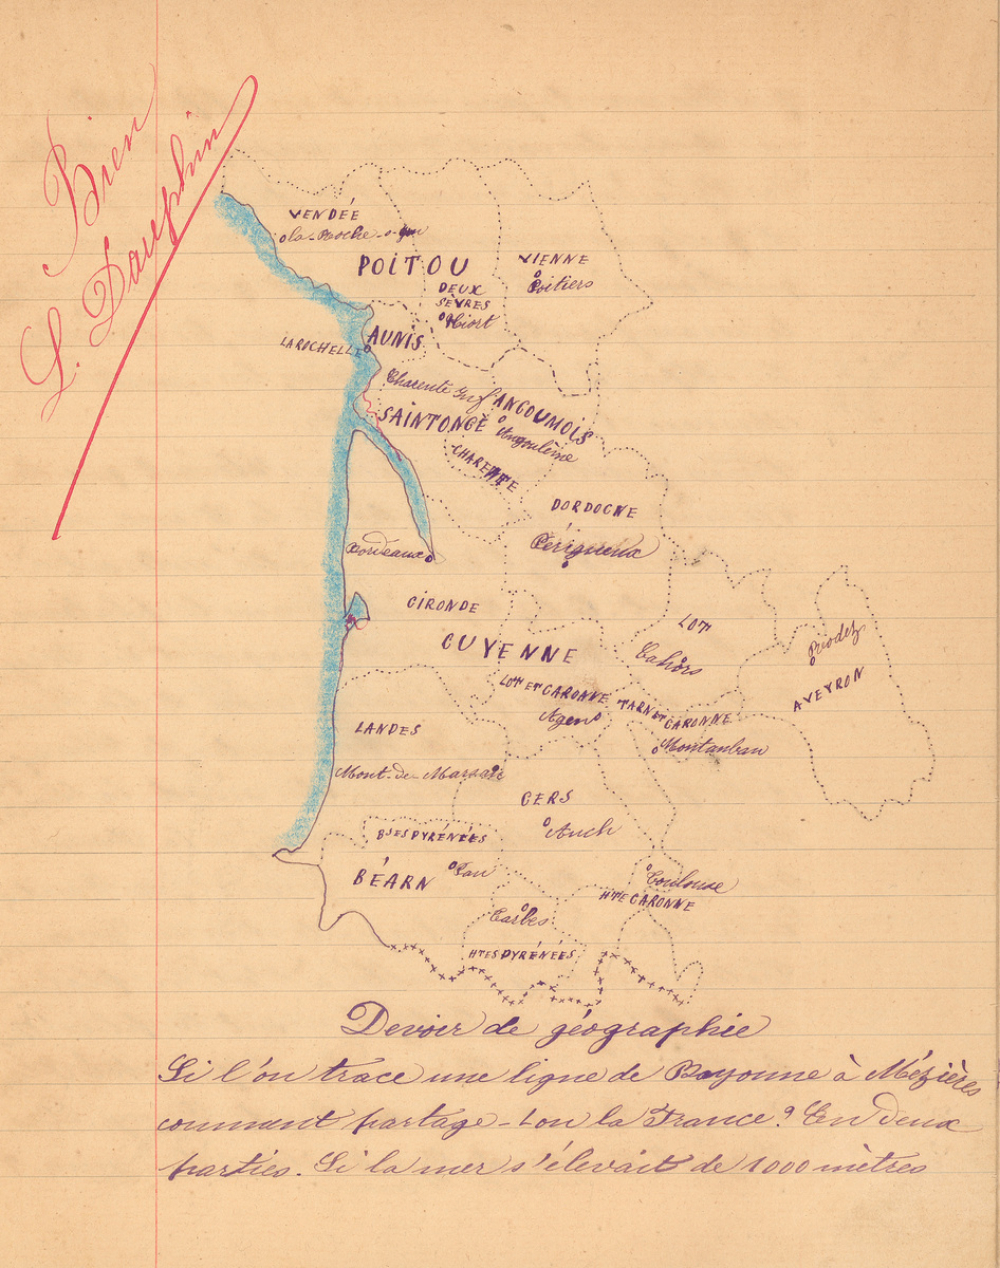 Bien
L. Dauphin
VENDÉE
la-Roche-s-yon
POITOU
VIENNE
Poitiers
DEUX
SEVRES
Niort
LA ROCHELLE
AUNIS
Charente Inf
ANGOUMOIS
SAINTONGE
Angoulême
CHARENTE
DORDOGNE
Périgueux
Bordeaux
GIRONDE
GUYENNE
LOT
Cahors
Rodez
AVEYRON
LOT ET GARONNE
Agen
TARN ET GARONNE
Montauban
LANDES
Mont-de-Marsan
GERS
Auch
BSES PYRÉNÉES
BÉARN
Pau
Toulouse
HTE GARONNE
Tarbes
HTES PYRÉNÉES
Devoir de géographie
Si l'on trace une ligne de Bayonne à Mézières
comment partage-t-on la France? En deux
parties. Si la mer s'élevait de 1000 mètres